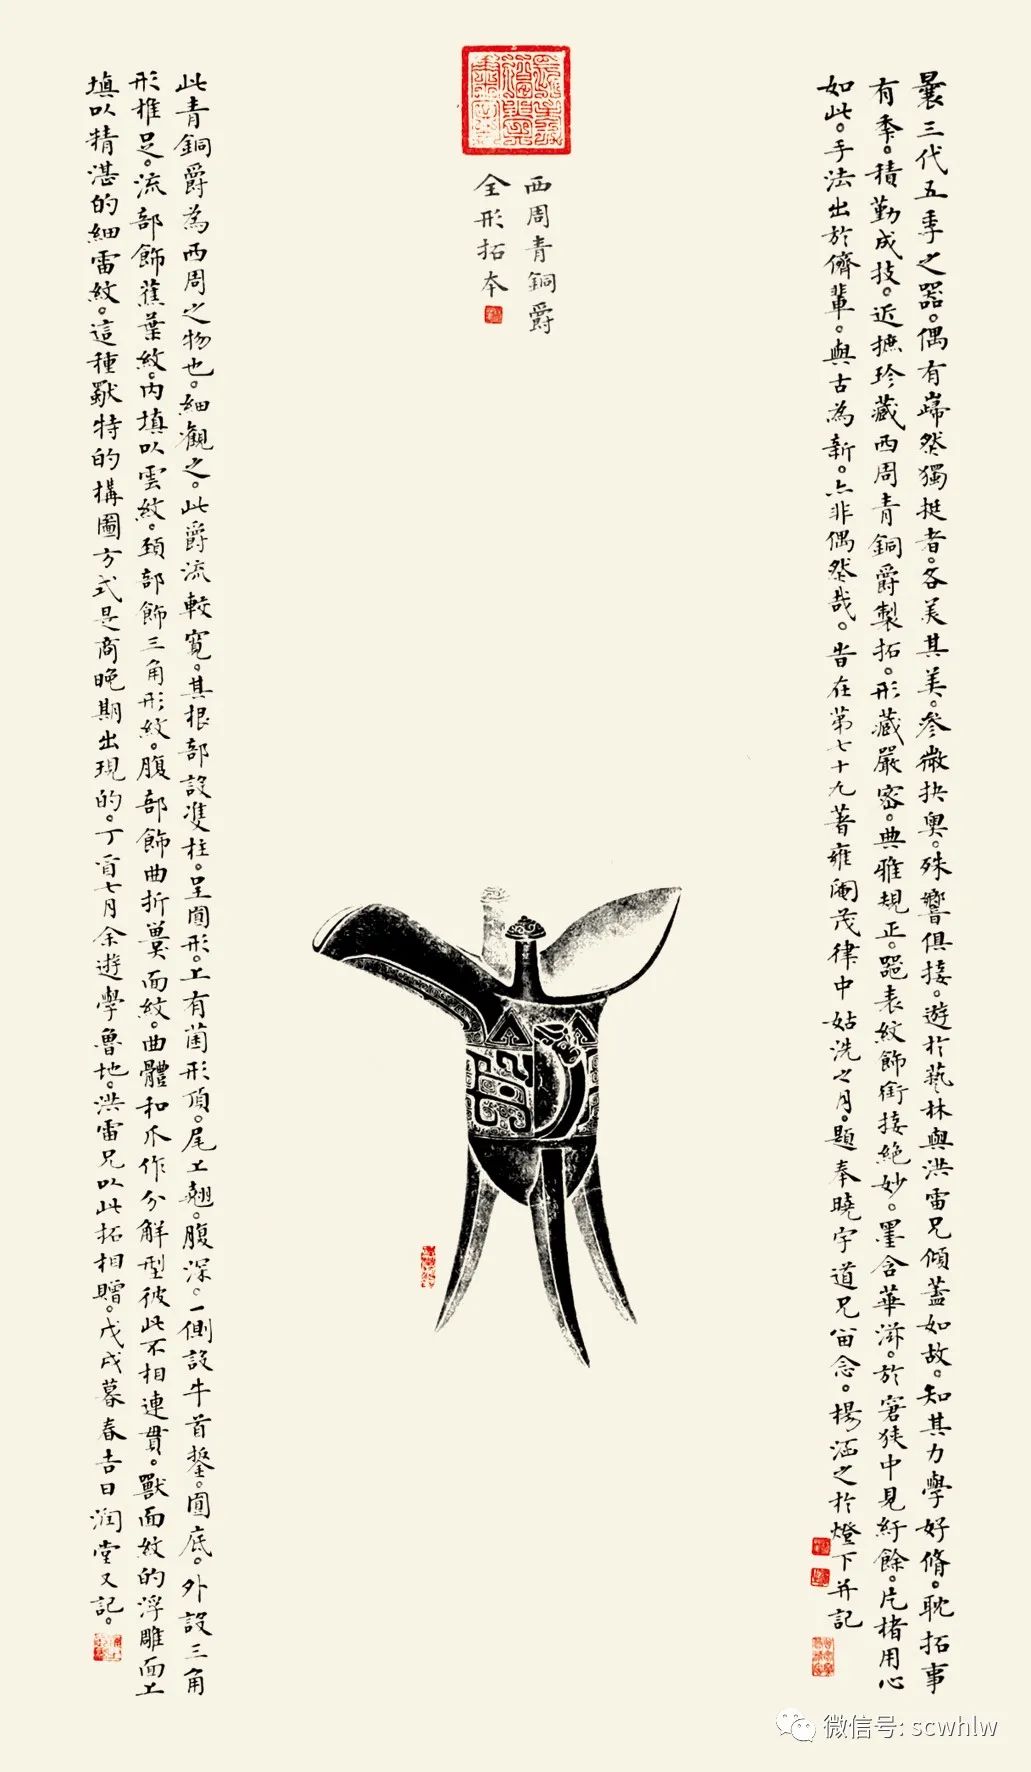 西周青銅爵
全形拓本
曩三代五季之器。偶有巋然獨挺者。各美其美。參微抉奧。殊響俱接。遊於藝林與洪雷兄傾蓋如故。知其力學好脩。耽拓事
有季。積勤成技。近摭珍藏西周青銅爵製拓。形藏嚴密。典雅規正。器表紋飾銜接絕妙。墨含華滋。於窘狹中見紆餘。片楮用心
如此。手法出於儕輩。與古為新。亦非偶然哉。旹在第七十九著雍閹茂律中姑洗之月。題奉曉宇道兄留念。楊涵之於燈下并記
此青銅爵為西周之物也。細觀之。此爵流較寬。其根部設雙柱。呈圓形。上有菌形頂。尾上翹。腹深。一側設牛首鋬。圓底。外設三角
形椎足。流部飾蕉葉紋。內填以雲紋。頸部飾三角形紋。腹部飾曲折獸面紋。曲體和爪作分解型彼此不相連貫。獸面紋的浮雕面上
填以精湛的細雷紋。這種獸特的構圖方式是商晚期出現的。丁酉七月余遊學魯地。洪雷兄以此拓相贈。戊戌暮春吉日潤堂又記。
微信号: scwhlw